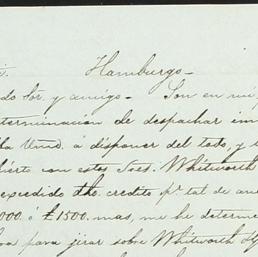 Hamburgo_
do Sor. y amigo_ Son en mi
terminacion de despachar
Vmd. a disponer del todo, y
bierto con estos Sres. Whitworth
excedido dho. credito pr. tal de
000. ó £1500. mas, me he determ
para jirar sobre Whitworth Hy